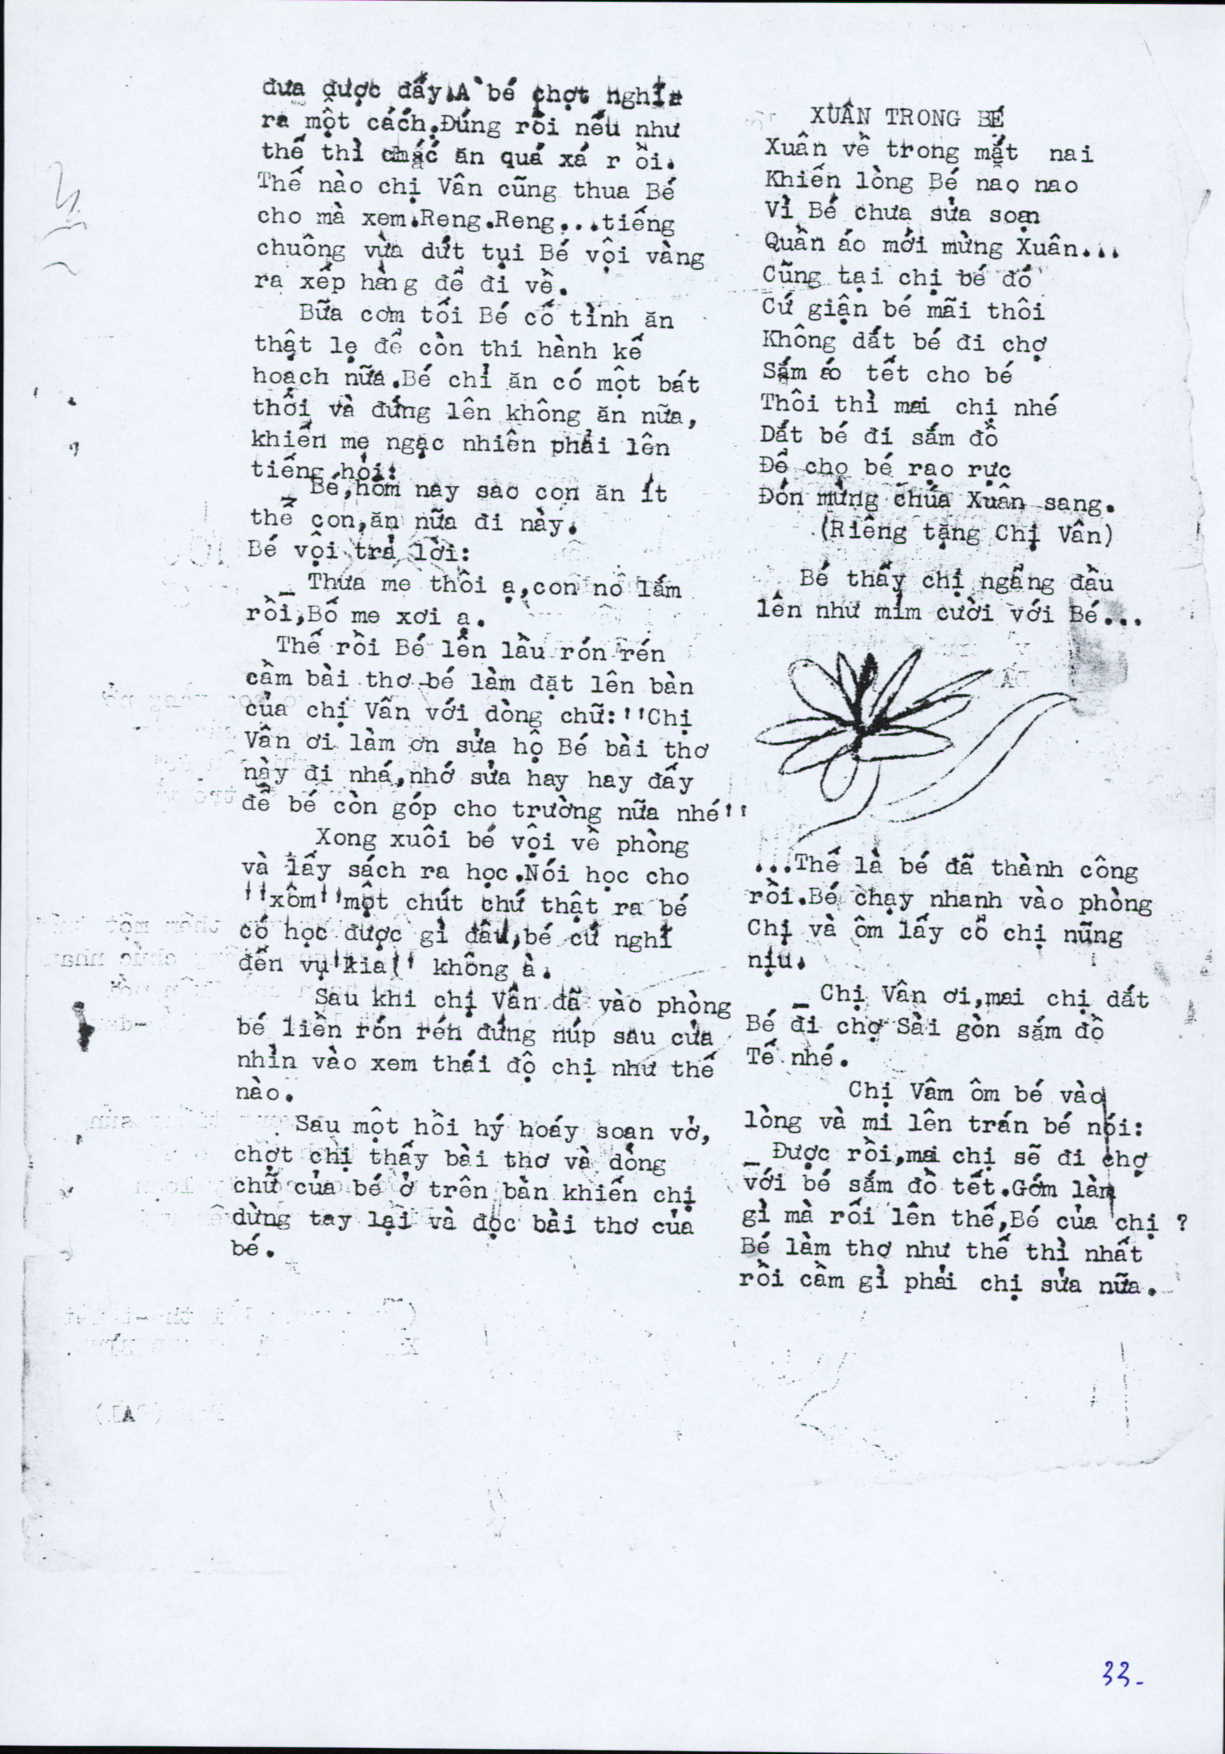 đưa được đấy.A bé chợt nghĩ
ra một cách.Đúng rồi nếu như
thế thì chắc ăn quá xá r ồi.
Thế nào chị Vân cũng thua Bé
cho mà xem.Reng.Reng...tiếng
chuông vừa dứt tụi Bé vội vàng
ra xếp hàng để đi về.
Bữa cơm tối Bé cố tình ăn
thật lẹ để còn thi hành kế
hoạch nữa.Bé chỉ ăn có một bát
thôi và đứng lên không ăn nữa,
khiến mẹ ngạc nhiên phải lên
tiếng hỏi:
_ Bé,hôm nay sao con ăn ít
thế con,ăn nữa đi này.
Bé vội trả lời:
_ Thưa me thôi ạ,con no lắm
rồi,Bố me xơi ạ.
Thế rồi Bé lên lầu rón rén
cầm bài thơ bé làm đặt lên bàn
của chị Vân với dòng chữ:''Chị
Vân ơi làm ơn sửa hộ Bé bài thơ
này đi nhá,nhớ sửa hay hay đấy
để bé còn góp cho trường nữa nhé''
Xong xuôi bé vội về phòng
và lấy sách ra học.Nói học cho
''xôm''một chút chứ thật ra bé
có học được gì đâu,bé cứ nghĩ
đến vụ''kia'' không à.
Sau khi chị Vân đã vào phòng
bé liền rón rén đứng núp sau cửa
nhìn vào xem thái độ chị như thế
nào.
Sau một hồi hý hoáy soạn vở,
chợt chị thấy bài thơ và dòng
chữ của bé ở trên bàn khiến chị
dừng tay lại và đọc bài thơ của
bé.
XUÂN TRONG BÉ
Xuân về trong mắt nai
Khiến lòng Bé nao nao
Vì Bé chưa sửa soạn
Quần áo mới mừng Xuân...
Cũng tại chị bé đó
Cứ giận bé mãi thôi
Không dắt bé đi chợ
Sắm áo tết cho bé
Thôi thì mai chị nhé
Dắt bé đi sắm đồ
Để cho bé rạo rực
Đón mừng chúa Xuân sang.
(Riêng tặng Chị Vân)
Bé thấy chị ngẩng đầu
lên như mỉm cười với Bé...
...Thế là bé đã thành công
rồi.Bé chạy nhanh vào phòng
Chị và ôm lấy cổ chị nũng
nịu.
_ Chị Vân ơi,mai chị dắt
Bé đi chợ Sài gòn sắm đồ
Tế nhé.
Chị Vâm ôm bé vào
lòng và mi lên trán bé nói:
_ Được rồi,mai chị sẽ đi chợ
với bé sắm đồ tết.Gớm làm
gì mà rối lên thế,Bé của chị ?
Bé làm thơ như thế thì nhất
rồi cầm gì phải chị sửa nữa.
33-